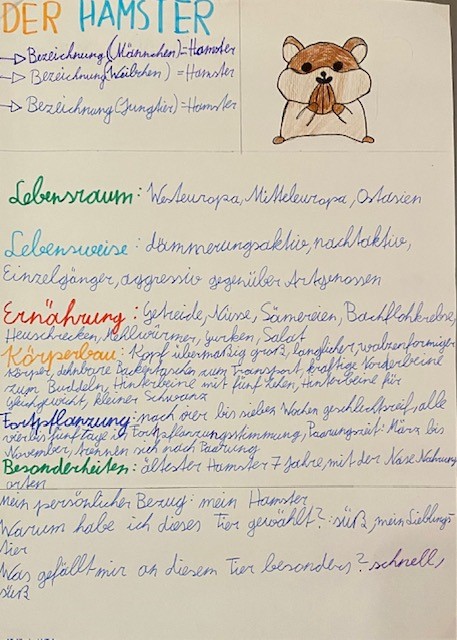 DER HAMSTER
→ Bezeichnung (Männchen) = Hamster
→ Bezeichnung (Weibchen) = Hamster
→ Bezeichnung (Jungtier) = Hamster
Lebensraum: Westeuropa, Mitteleuropa, Ostasien
Lebensweise: dämmerungsaktiv, nachtaktiv,
Einzelgänger, aggressiv gegenüber Artgenossen
Ernährung: Getreide, Nüsse, Sämereien, Bachflohkrebse,
Heuschrecken, Mehlwürmer, Gurken, Salat
Körperbau: Kopf übermäßig groß, länglicher, walzenförmiger
Körper, dehnbare Backentaschen zum Transport, kräftige Vorderbeine
zum Buddeln, Hinterbeine mit fünf Zehen, Hinterbeine für
Gleichgewicht, kleiner Schwanz
Fortpflanzung: nach vier bis sieben Wochen geschlechtsreif, alle
vier bis fünf Tage in Fortpflanzungsstimmung, Paarungszeit: März bis
November, trennen sich nach Paarung
Besonderheiten: ältester Hamster 7 Jahre, mit der Nase Nahrung
orten
Mein persönlicher Bezug: mein Hamster
Warum habe ich dieses Tier gewählt?: süß, mein Lieblings-
tier
Was gefällt mir an diesem Tier besonders? schnell,
süß